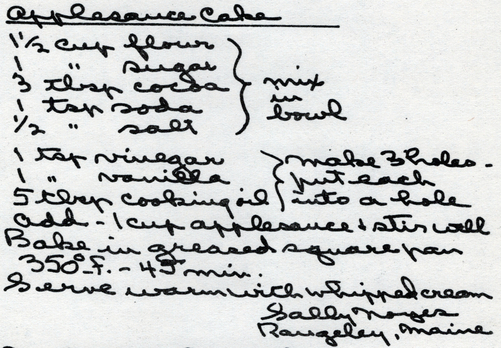 Applesauce Cake
1 1/2 cup flour
1 " sugar
3 tbsp cocoa
1 tsp soda
1/2 " salt
mix
in
bowl
1 tsp vinegar
1 " vanilla
5 tbsp cooking oil
make 3 holes -
put each
into a hole
add - 1 cup applesauce & stir well
Bake in greased square pan
350° F. - 45 min.
Serve warm with whipped cream
Sally Noyes
Rangeley, Maine